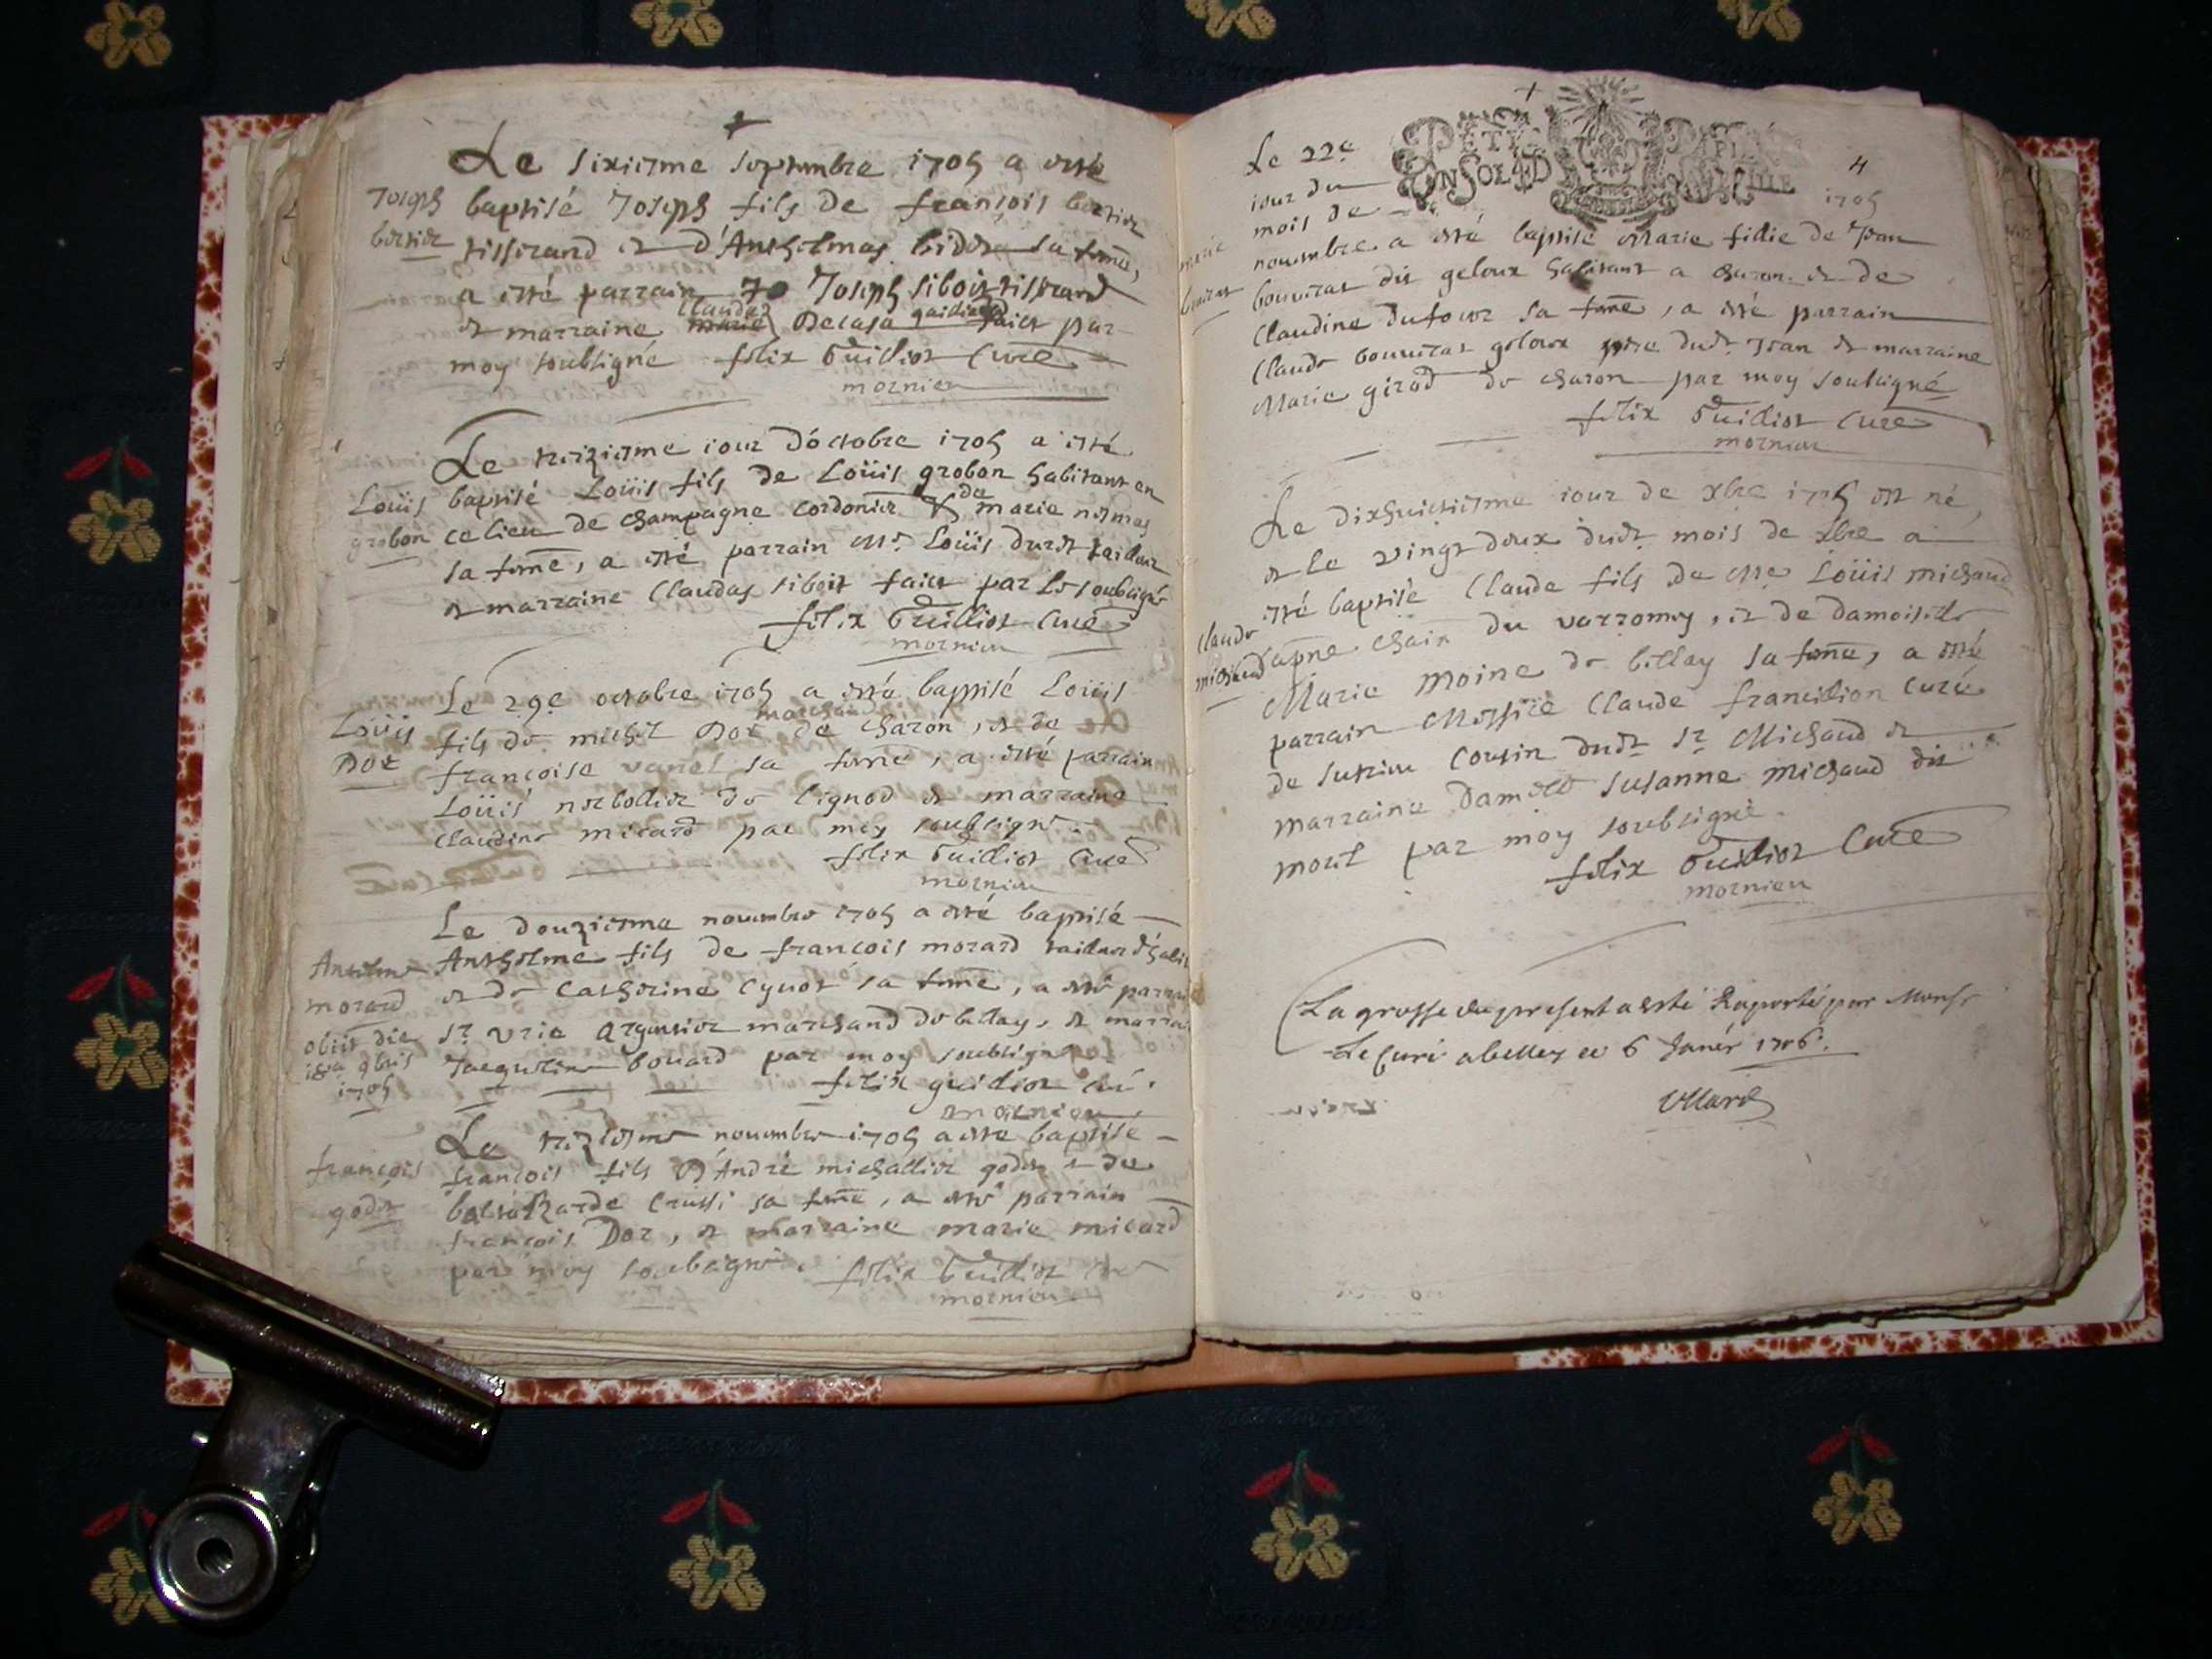 Le sixiesme septembre 1705 a esté
Joseph baptisé Joseph fils de françois
tisserand et d'Anthelmaz sa feme,
a esté parrain Joseph siboit tisserand
et marraine claudaz faict par
moy soubsigné felix Guilliot Curé
mornieu
Le treiziesme iour d'octobre 1705 a esté
Loüis baptisé Loüis fils de Loüis grobon habitant en
grobon ce lieu de champagne cordonier & de marie
sa feme, a esté parrain Mr Loüis tailleur
et marraine Claudaz siboit faict par le soubsigné
felix Guilliot Curé
mornieu
Le 29e octobre 1705 a esté baptisé Loüis
Loüis fils de michel Dor marchand de charon, et de
Dor françoise vanel sa feme, a esté parrain
Loüis de lignod et marraine
claudine micard par moy soubsigné
felix Guilliot Curé
mornieu
Le douziesme novembre 1705 a esté baptisé
Anthelme Anthelme fils de françois morard tailleur
morard et de Catherine sa feme, a esté
obiit die Sr marchand de bellay, et
9bris Jaqueline bouard par moy soubsigné
1705 felix guilliot curé
mornieu
Le treziesme novembre 1705 a esté baptisé
françois françois fils d'André michallier godet et de
godet sa feme, a esté parrain
françois Dor, et marraine marie micard
par moy soubsigné. felix Guilliot
mornieu
Le 22e
4
1705
PETIT PAPIER
UN SOL 4 D LA FEUILLE
iour du
mois de
novembre a esté baptisé Marie fillie de Jean
marie bouvrat dit geloux habitant a charon et de
Claudine dufour sa feme, a esté parrain
Claude bouvrat geloux pere dudt Jean et marraine
Marie girod de charon par moy soubsigné
felix Guilliot Curé
mornieu
Le dixhuictiesme iour de xbre 1705 est né,
et le vingt deux dudt mois de xbre a
esté baptisé Claude fils de Mre Loüis michaud
claude chatn du varromey, et de damoiselle
michaud Marie moine de bellay sa feme, a esté
parrain Messire Claude francillion Curé
de sutrieu cousin dudt Sr Michaud et
marraine damlle susanne michaud
mout par moy soubsigné.
felix Guilliot Curé
mornieu
La grosse du present a esté Raporté par Monsr
Le Curé a belley ce 6 Janer 1706.